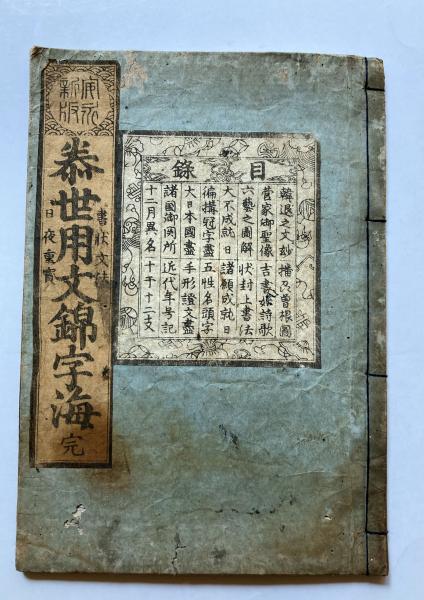 安永
新版
泰世用文錦字海
書状文法
日夜重宝
完
目録
韓退之文鈔
菅家御聖像 吉書始詩歌
六藝之圖解 状封上書法
大不成就日 諸願成就日
偏搆冠字盡 五性名頭字
大日本國盡 手形證文盡
諸國御関所 近代年号記
十二月異名 十干十二支